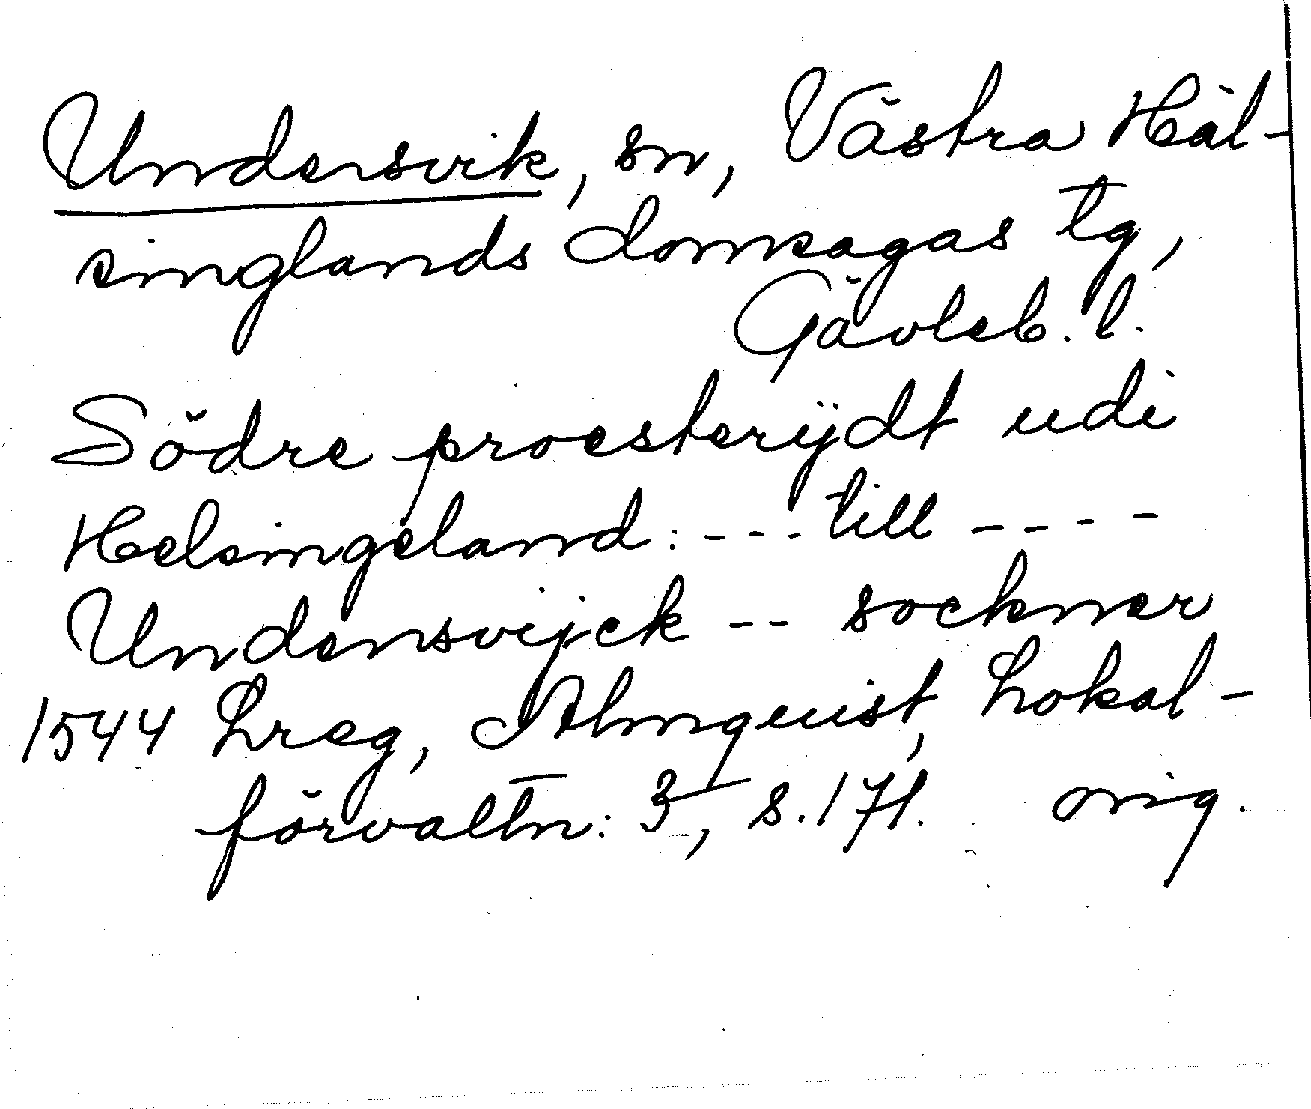 Undersvik, sn, Västra Häl-
singlands domsagas tg,
Gävleb. l.
Södre proesterijdt udi
Helsingeland: --- till ----
Undensvijck -- sockner
1544 Lreg, Almquist, Lokal-
förvaltn: 3, s. 171. orig.